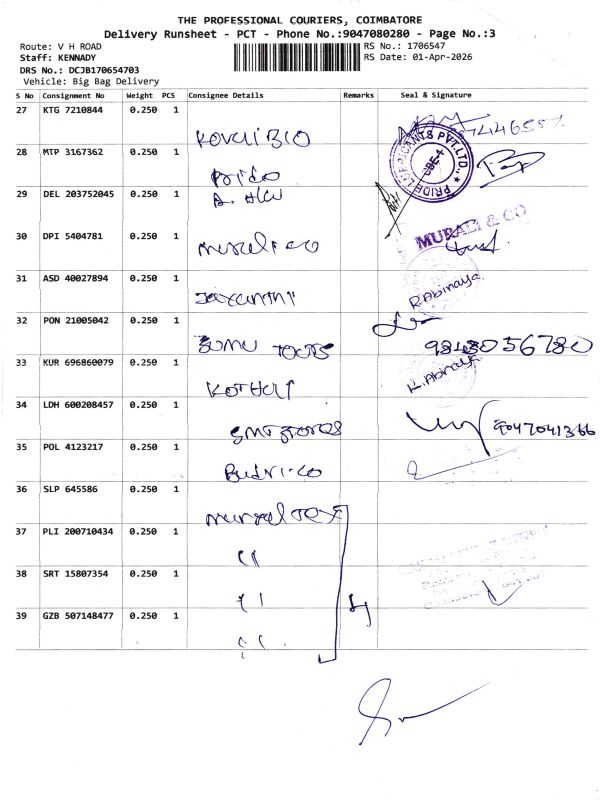 THE PROFESSIONAL COURIERS, COIMBATORE
Delivery Runsheet - PCT - Phone No.:9047080280 - Page No.:3
Route: V H ROAD
RS No.: 1706547
Staff: KENNADY
RS Date: 01-Apr-2026
DRS No.: DCJB170654703
Vehicle: Big Bag Delivery
S No Consignment No Weight PCS Consignee Details Remarks Seal & Signature
27 KTG 7210844 0.250 1
Kovai BIO
28 MTP 3167362 0.250 1
PRIDE LUBRICANTS PVT.LTD., CBE-4
Prido
29 DEL 203752045 0.250 1
30 DPI 5404781 0.250 1
MURALI & CO
Murali co
31 ASD 40027894 0.250 1
R.Abinaya
Jayanthi
32 PON 21005042 0.250 1
Somu TOOLS 98430 56780
33 KUR 696860079 0.250 1
K.Abinaya
Kothari
34 LDH 600208457 0.250 1
SMT Stores 9047041366
35 POL 4123217 0.250 1
36 SLP 645586 0.250 1
Murugal Tex
37 PLI 200710434 0.250 1
11
38 SRT 15807354 0.250 1
11 4
39 GZB 507148477 0.250 1
11